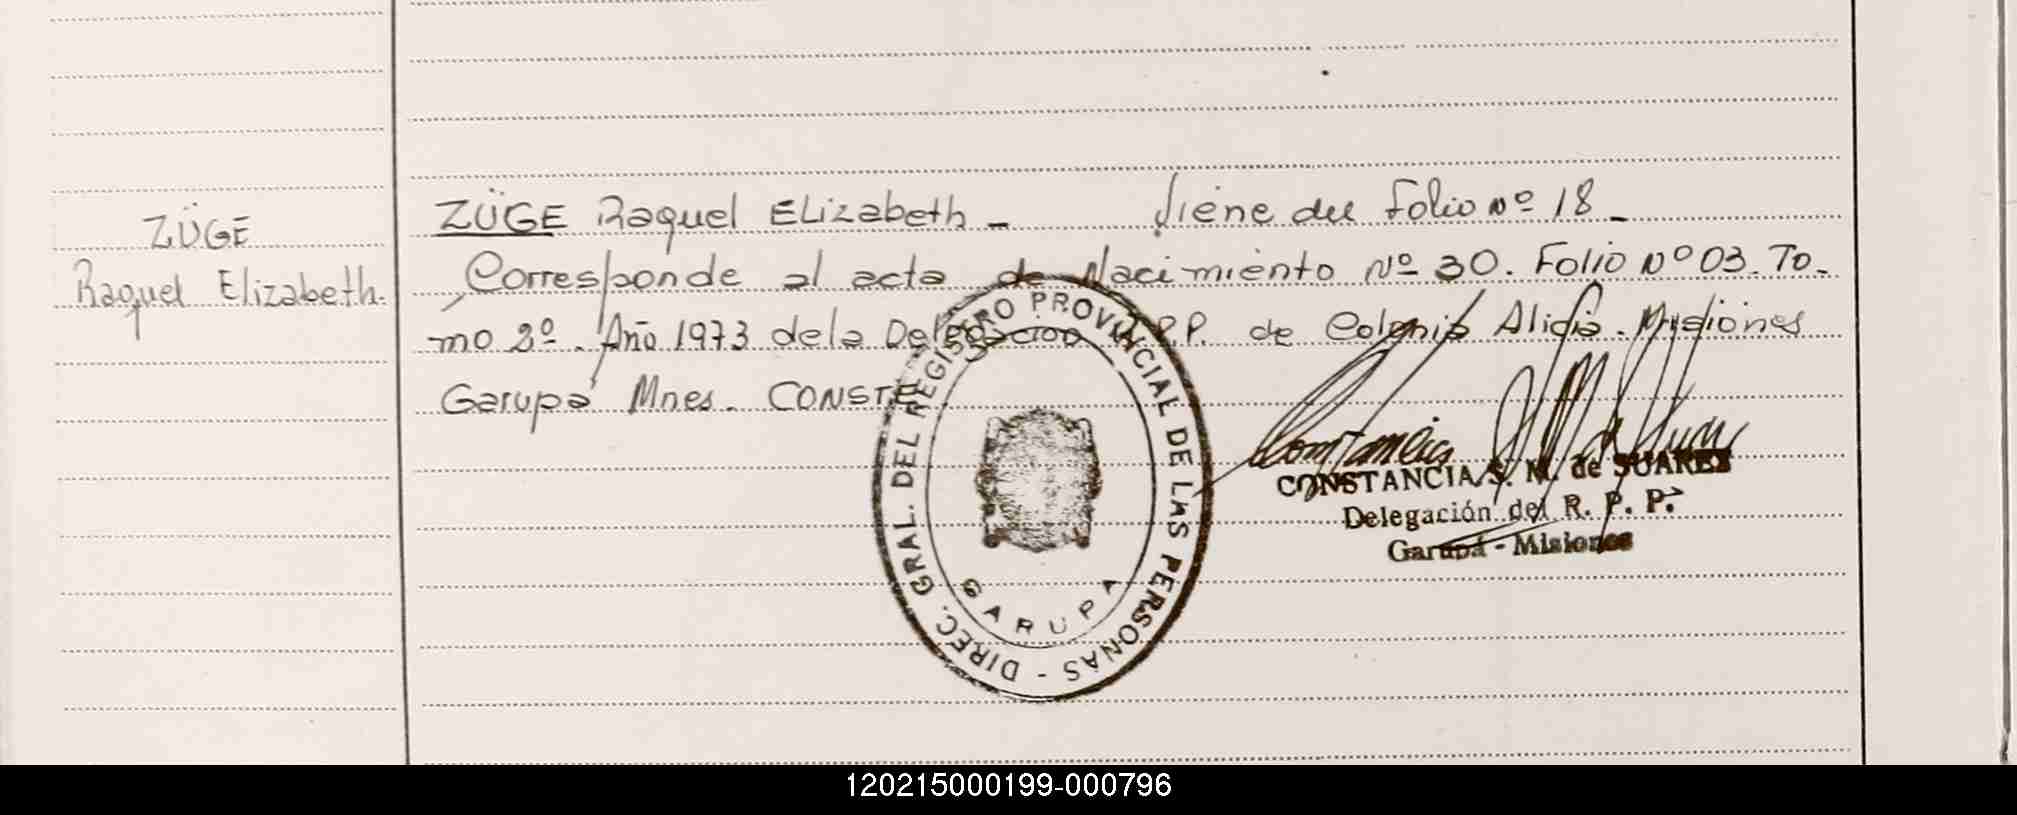 ZÜGE
Raquel Elizabeth.
ZÜGE Raquel Elizabeth - Viene del Folio Nº 18 -
Corresponde al acta de Nacimiento Nº 30. Folio Nº 03. To-
mo 2º. Año 1973 de la Delegacion R.P.P. de Colonia Alicia. Misiones
Garupá Mnes. CONSTE
DIREC. GRAL. DEL REGISTRO PROVINCIAL DE LAS PERSONAS -
GARUPA
CONSTANCIA S. M. de SUAREZ
Delegación del R. P. P.
Garupá - Misiones
120215000199-000796